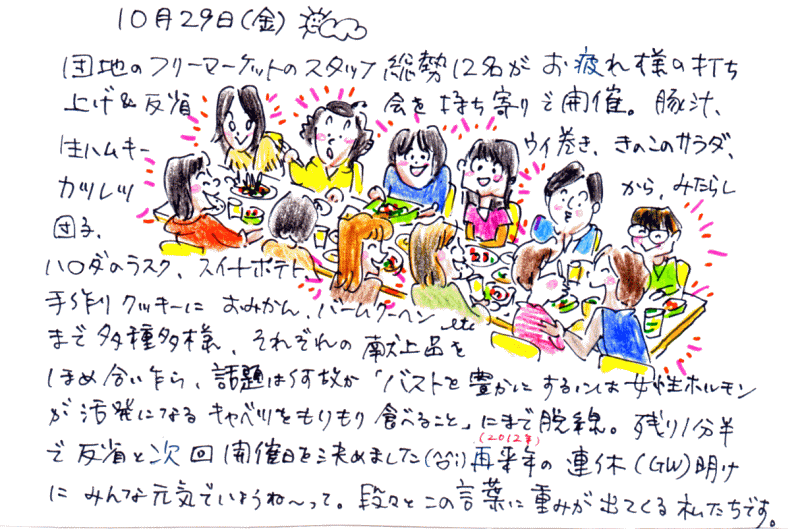 10月29日(金)
団地のフリーマーケットのスタッフ総勢12名がお疲れ様の打ち
上げ&反省会を持ち寄りで開催。豚汁、
生ハムキーウイ巻き、きのこのサラダ、
カツレツから、みたらし
団子、
ハロダのラスク、スイートポテト、
手作りクッキーにおみかん、バームクーヘンetc
まで多種多様、それぞれの献上品を
ほめ合い乍ら、話題はなす故か「バストを豊かにするには女性ホルモン
が活発になるキャベツをもりもり食べること」にまで脱線。残り1分半
で反省と次回開催日を決めました(合)(2012年)再来年の連休(GW)明け
にみんな元気でいようね〜って。段々とこの言葉に重みが出てくる私たちです。